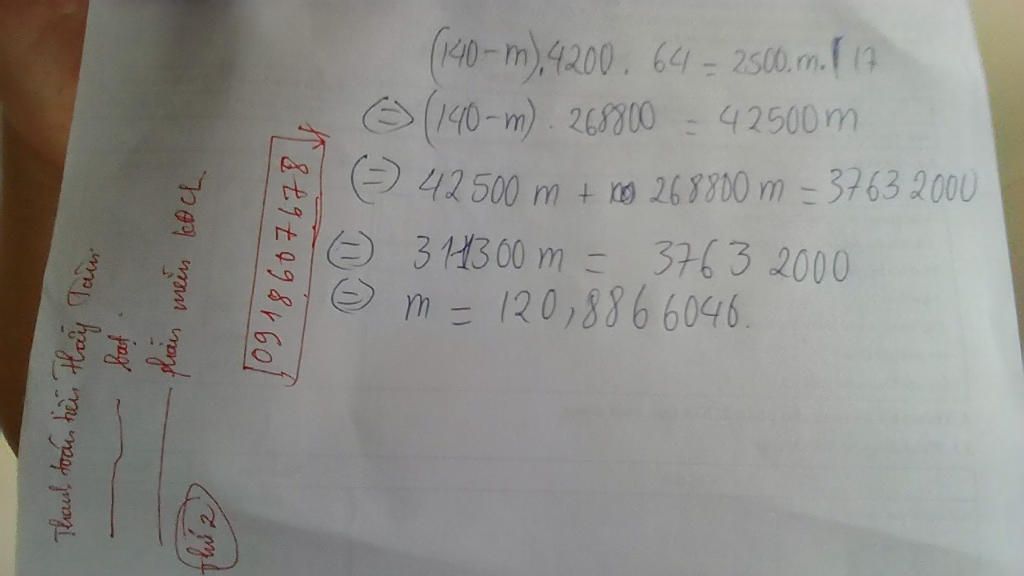 (140-m).4200. 64 = 2500.m.17
(=) (140-m). 268800 = 42500m
(=) 42500 m + 268800 m = 37632000
(=) 311300 m = 37632000
(=) m = 120,8866046.
0918607678
Thanh toán tiền Thầy Tâm
bạt.
phần mềm
thứ 2